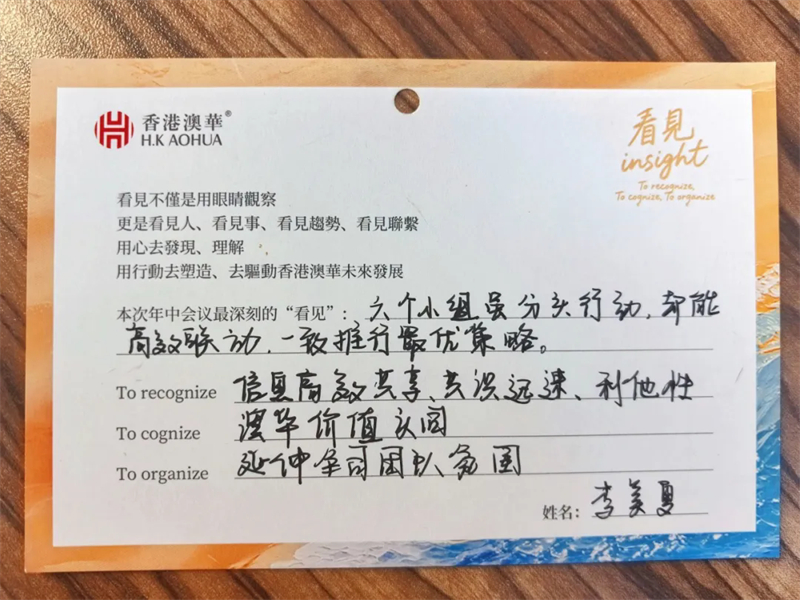 香港澳華®
H.K AOHUA
看見
insight
To recognize,
To cognize, To organize
看見不僅是用眼睛觀察
更是看見人、看見事、看見趨勢、看見聯繫
用心去發現、理解
用行動去塑造、去驅動香港澳華未來發展
本次年中会议最深刻的“看见”：六个小组虽分头行动，却能
高效联动，一致推行最优策略。
To recognize 信息高效共享、共识迅速、利他性
To cognize 澳华价值认同
To organize 延伸至司团队氛围
姓名：李美夏